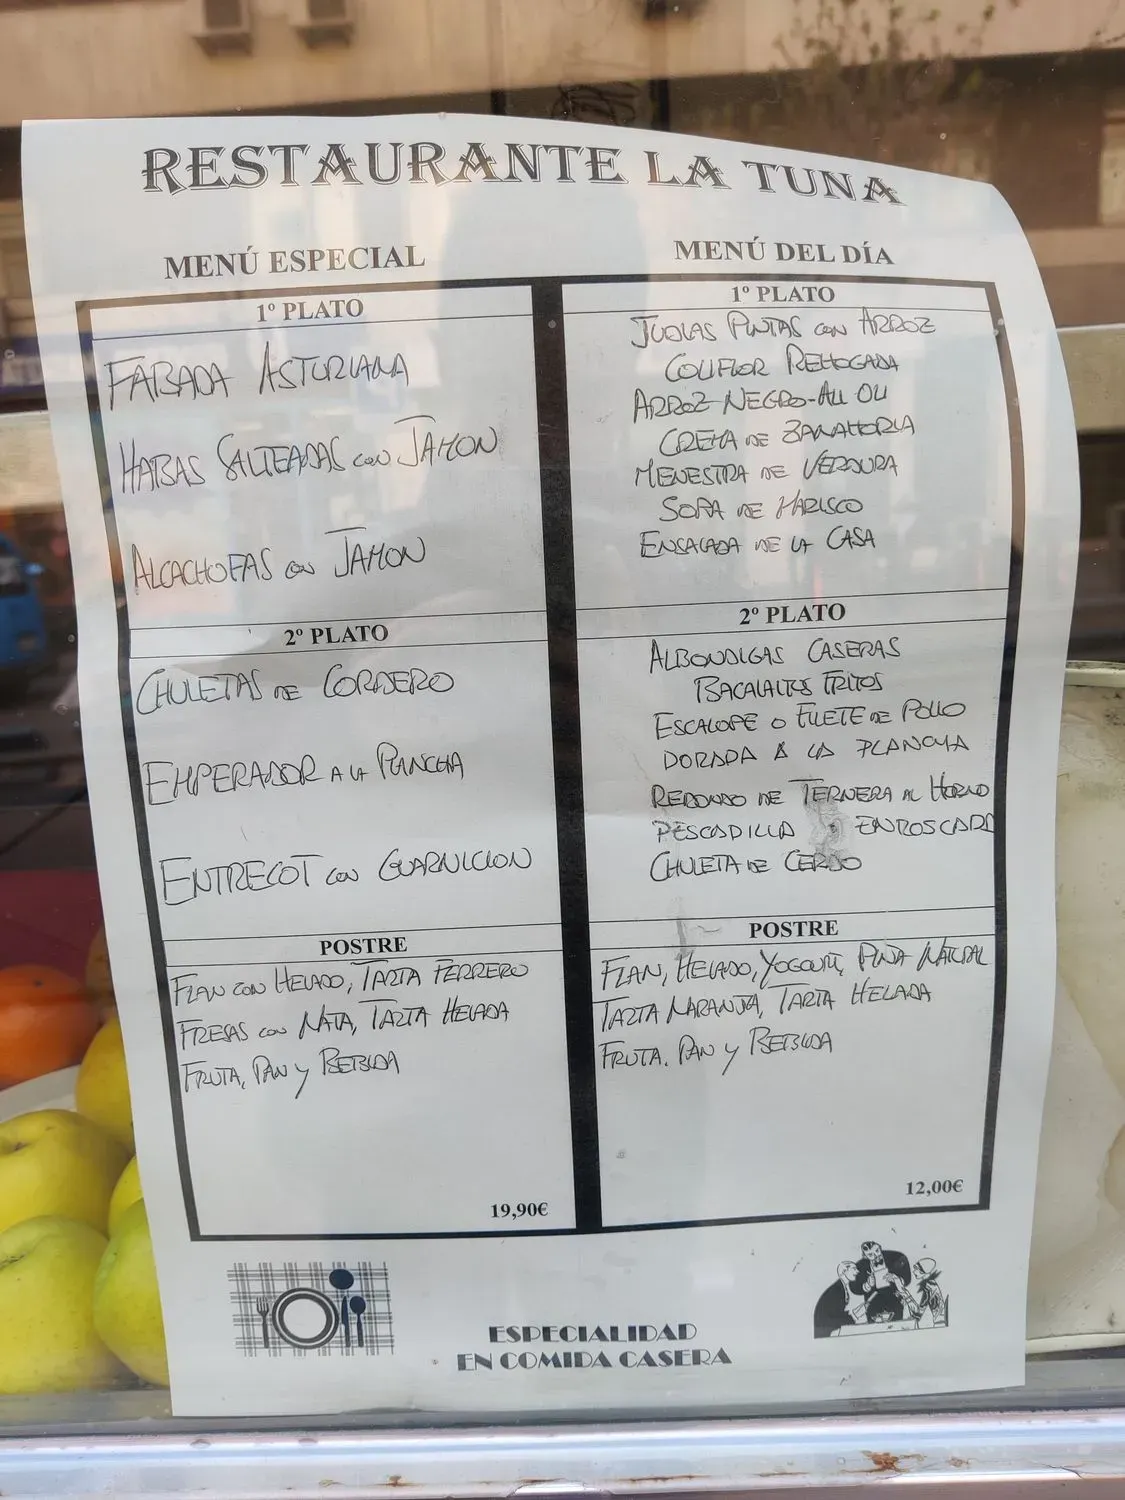 RESTAURANTE LA TUNA
MENÚ ESPECIAL
1º PLATO
FABADA ASTURIANA
HABAS SALTEADAS con JAMON
ALCACHOFAS con JAMON
2º PLATO
CHULETAS DE CORDERO
EMPERADOR A LA PLANCHA
ENTRECOT con GUARNICION
POSTRE
FLAN CON HELADO, TARTA FERRERO
FRESAS con NATA, TARTA HELADA
FRUTA, PAN y BEBIDA
19,90€
MENÚ DEL DÍA
1º PLATO
JUDIAS PINTAS con ARROZ
COLIFLOR REHOGADA
ARROZ NEGRO-ALI OLI
CREMA DE ZANAHORIA
MENESTRA DE VERDURA
SOPA DE MARISCO
ENSALADA DE LA CASA
2º PLATO
ALBONDIGAS CASERAS
BACALAITOS FRITOS
ESCALOPE O FILETE DE POLLO
DORADA A LA PLANCHA
REDONDO DE TERNERA AL HORNO
PESCADILLA ENROSCADA
CHULETA DE CERDO
POSTRE
FLAN, HELADO, YOGOURT, PIÑA NATURAL
TARTA NARANJA, TARTA HELADA
FRUTA. PAN y BEBIDA
12,00€
ESPECIALIDAD
EN COMIDA CASERA